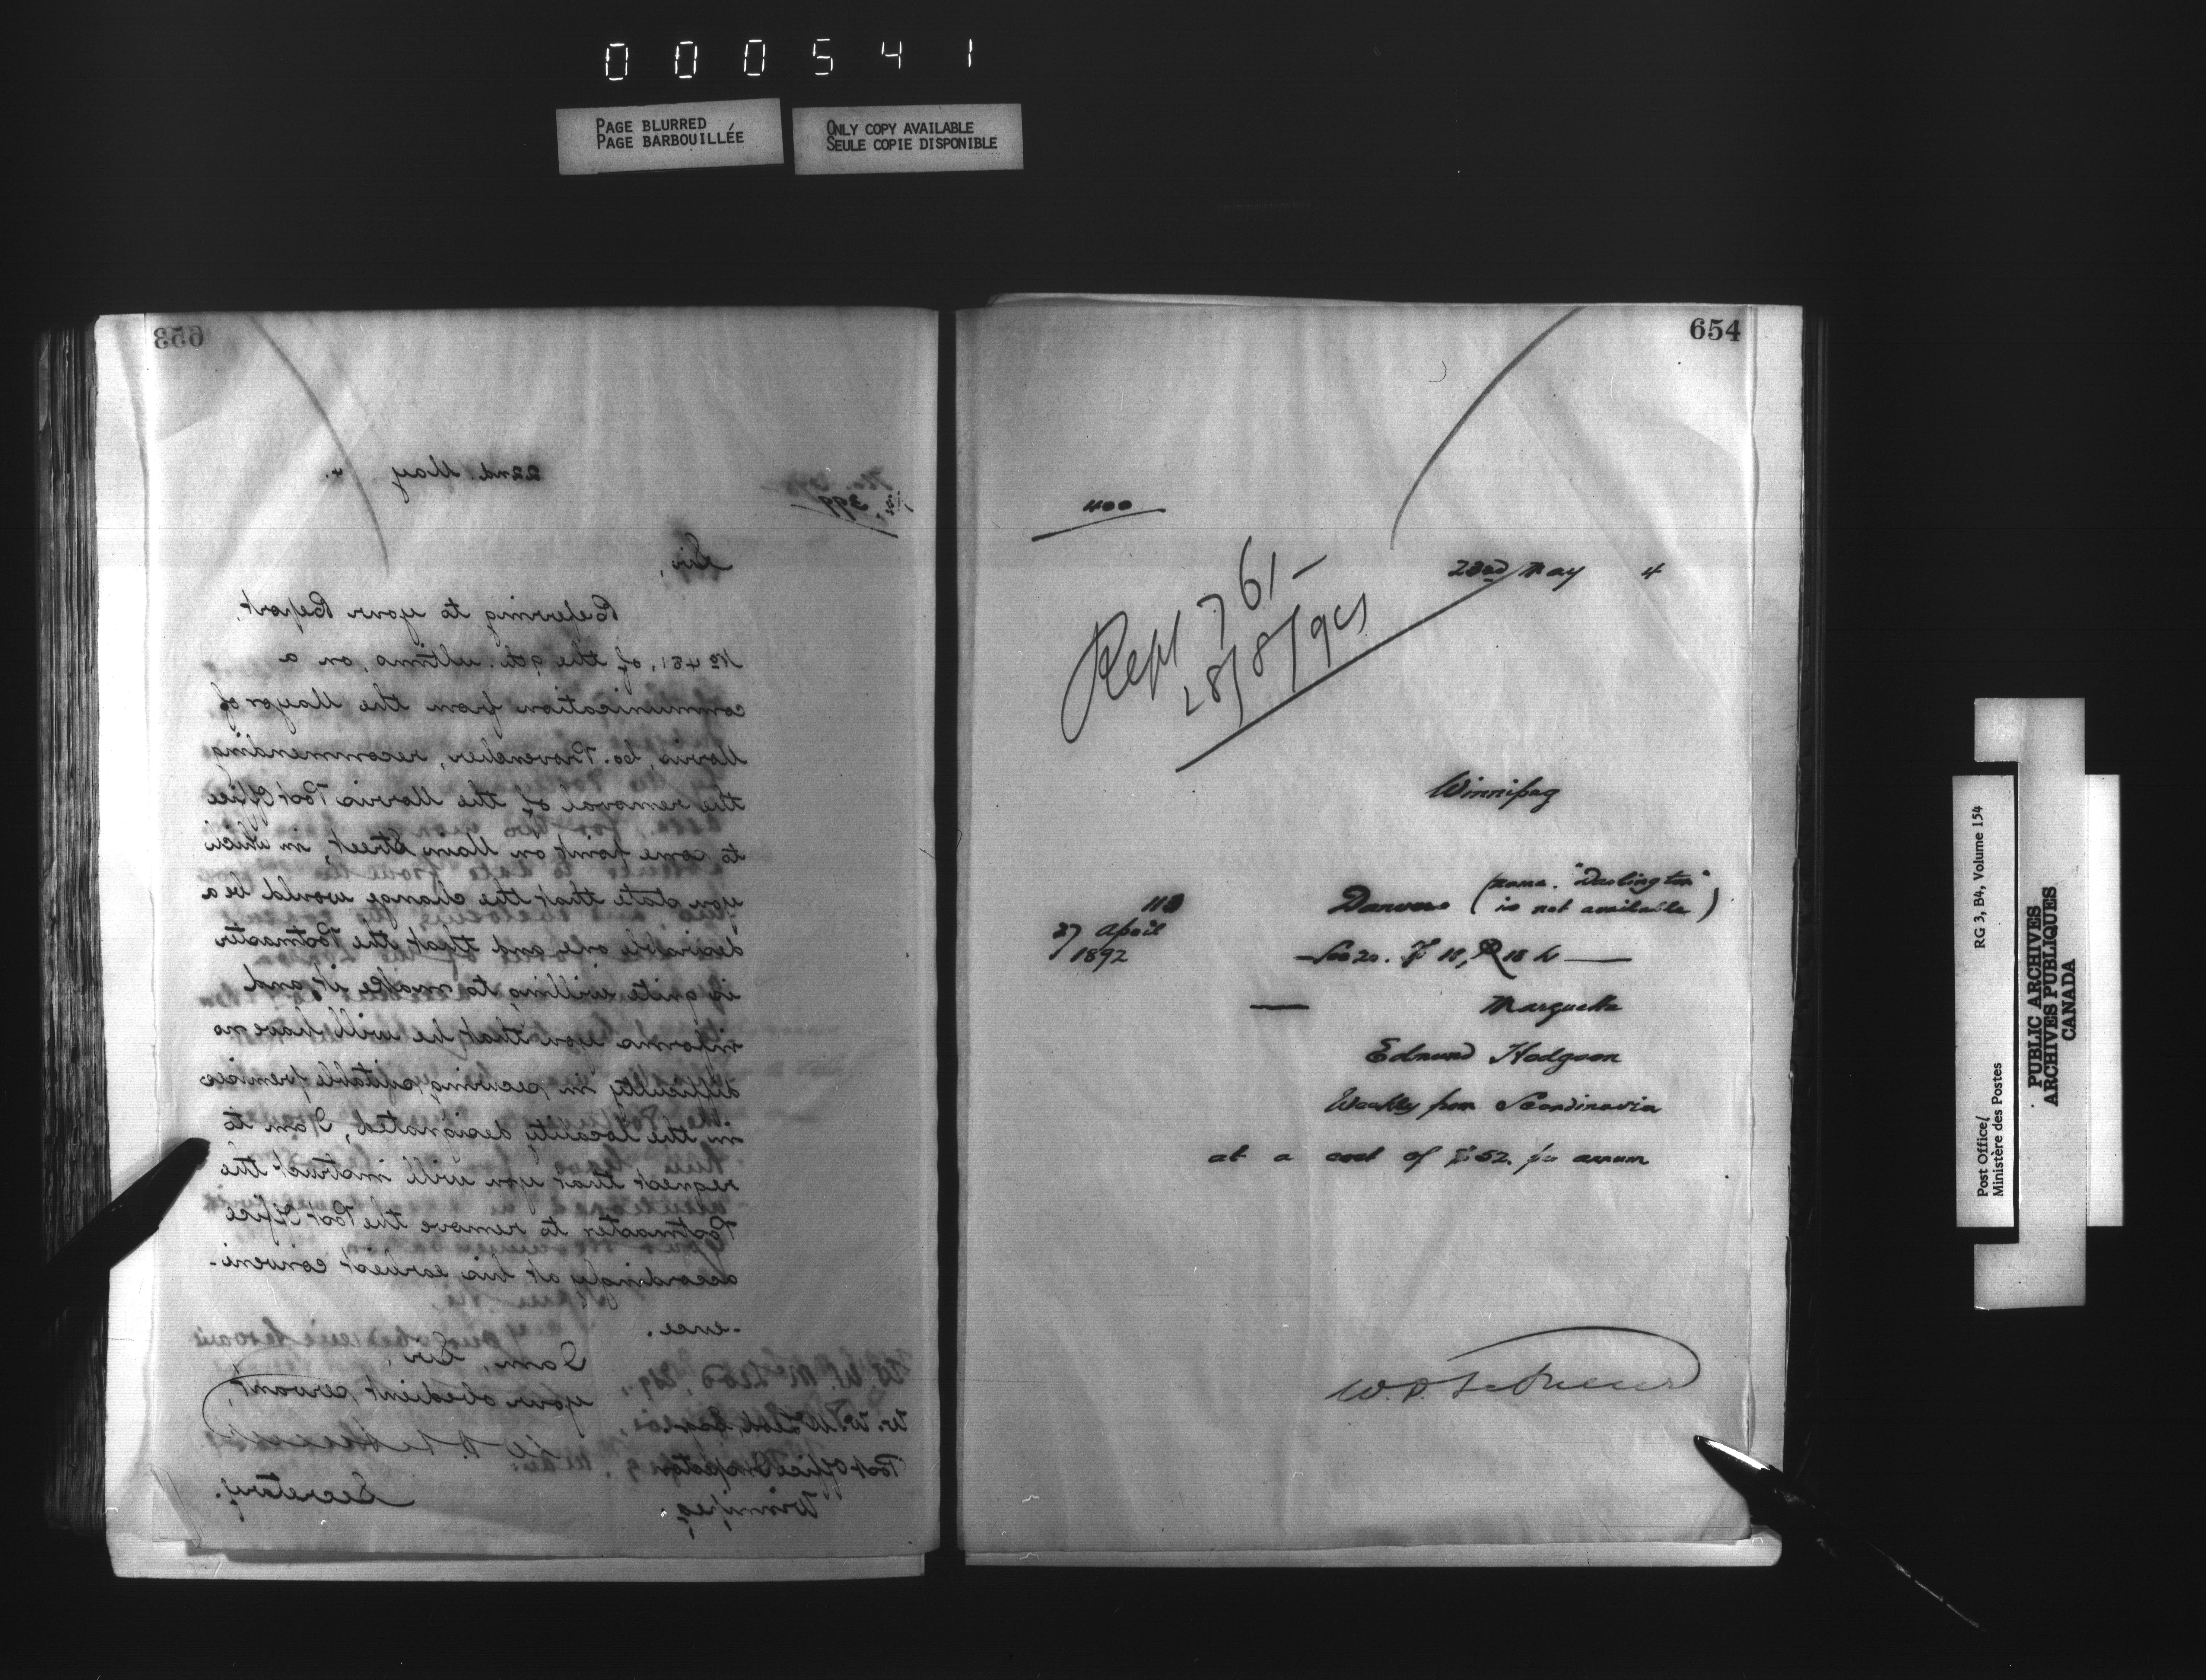 000541
PAGE BLURRED
PAGE BARBOUILLÉE
ONLY COPY AVAILABLE
SEULE COPIE DISPONIBLE
653
22nd. May 4.
399
Sir,
Referring to your Report,
No 481, of the 9th. ultimo, on a
communication from the Mayor of
Morris, Co. Provencher, recommending
the removal of the Morris Post Office
to some point on Main Street, in which
you state that the change would be a
desirable one and that the Postmaster
is quite willing to make it and
informs you that he will have no
difficulty in securing suitable premises
in the locality designated, I am to
request that you will instruct the
Postmaster to remove the Post Office
accordingly at his earliest conveni-
-ence.
I am, Sir,
your obedient servant,
Secretary.
W. W. McLeod, Esq.,
Post Office Inspector,
Winnipeg.
654
400
23rd May 4
Rept 761-
28/8/94
Winnipeg
27 April
1892
Danvers (name "Darlington"
is not available)
Sec 20. T 18, R 18 W
— Marquette
Edmund Hodgson
Weekly from Scandinavia
at a cost of $52. per annum
Post Office/
Ministère des Postes
RG 3, B4, Volume 154
PUBLIC ARCHIVES
ARCHIVES PUBLIQUES
CANADA